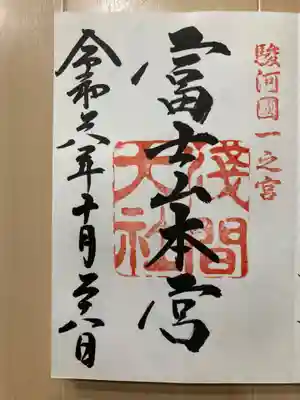 駿河國一之宮
富士山本宮
淺間大社
令和六年十月二十八日